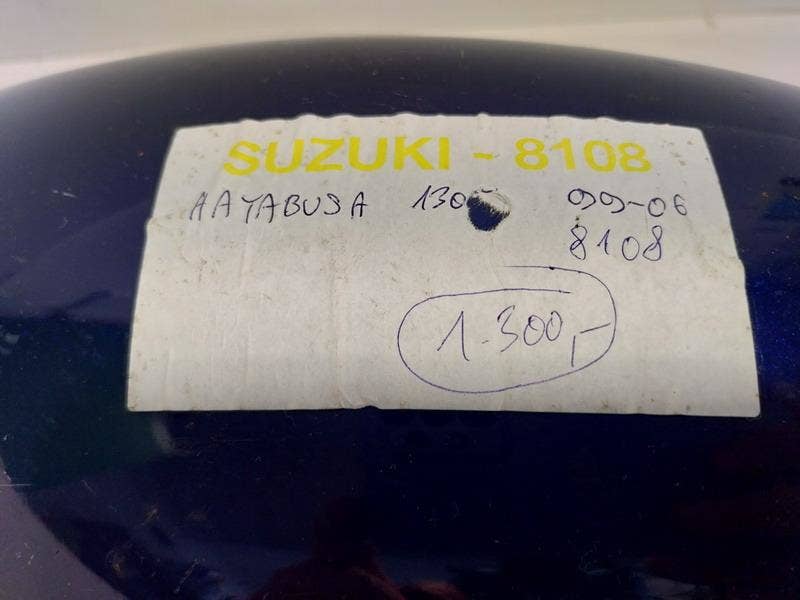 SUZUKI - 8108
HAYABUSA 1300 99-06
8108
1.300,-